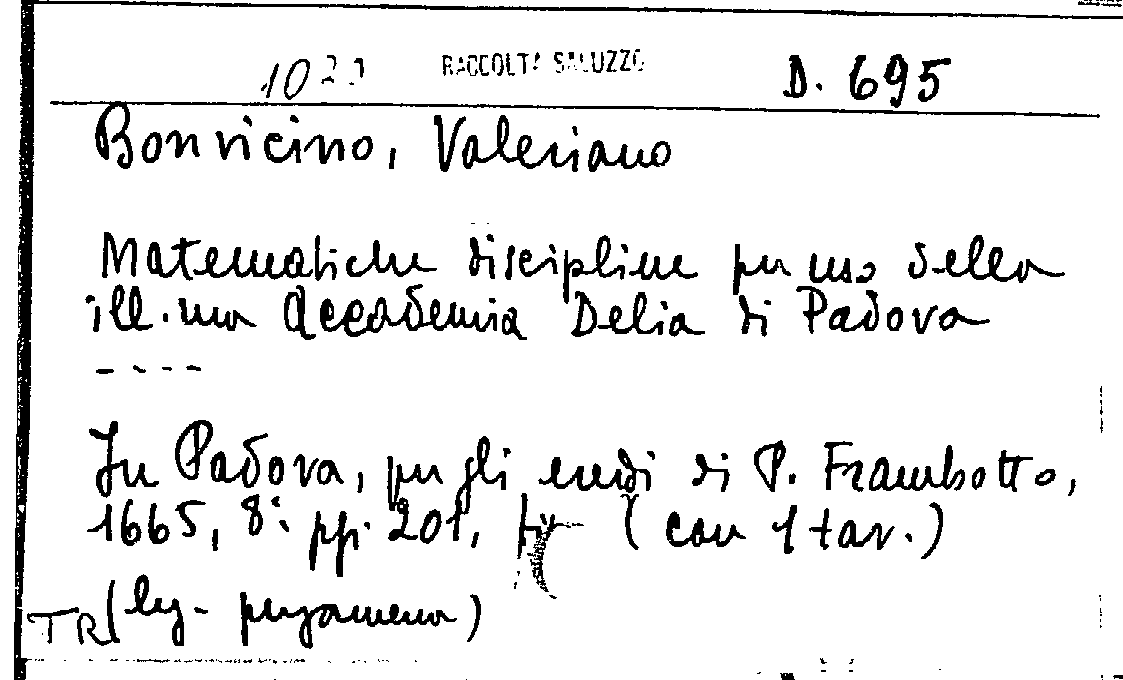 RACCOLTA SALUZZO D. 695
Bonvicino, Valeriano
Matematiche discipline per uso della
ill.ma Accademia Delia di Padova
----
In Padova, per gli eredi di P. Frambotto,
1665, 8°. pp. 201, (con 1 tav.)
TR (leg. pergamena)